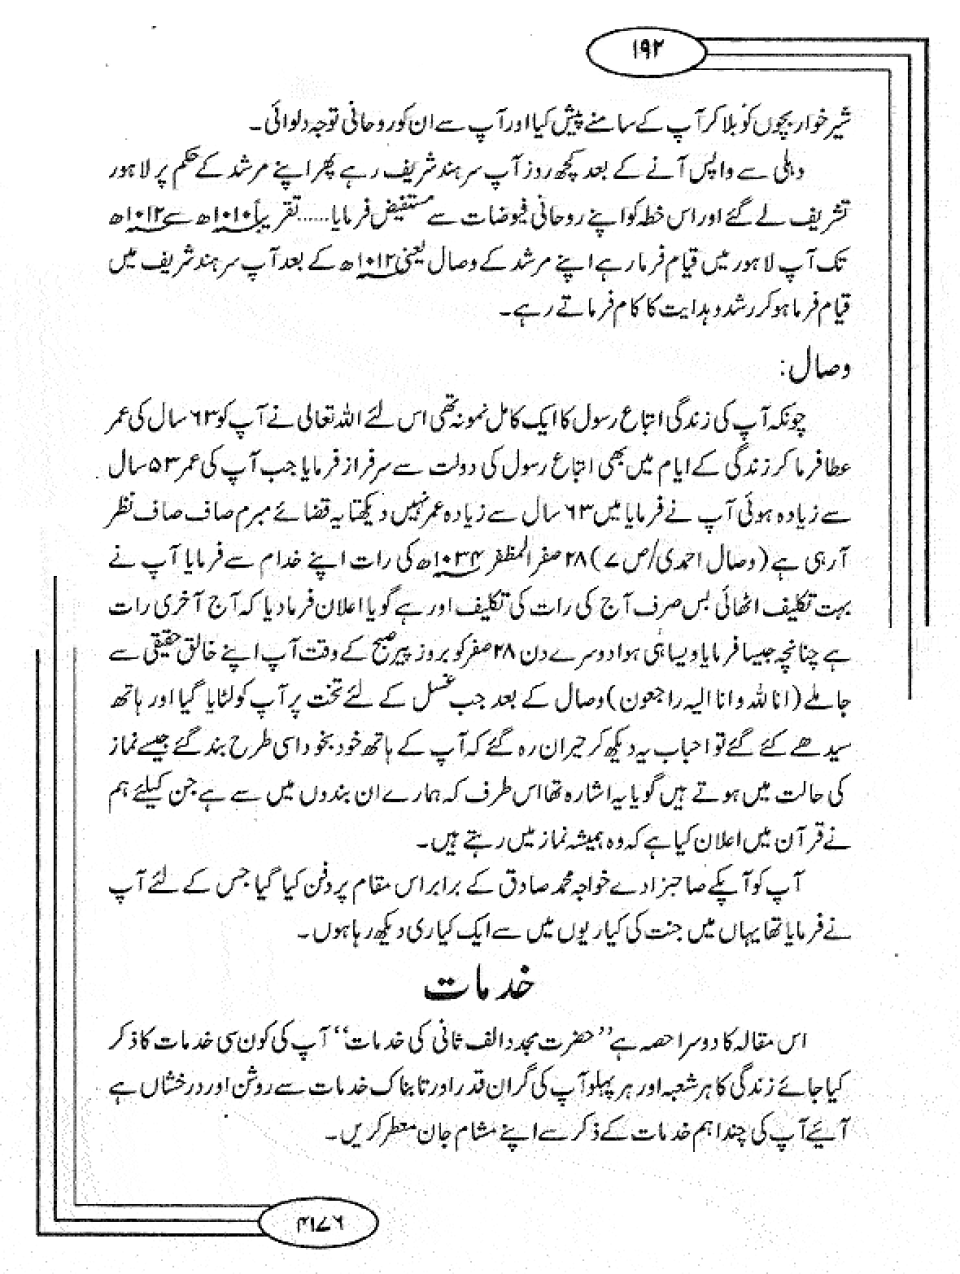 ۱۹۲
شیر خوار بچوں کو بلا کر آپ کے سامنے پیش کیا اور آپ سے ان کو روحانی توجہ دلوائی۔
دہلی سے واپس آنے کے بعد کچھ روز آپ سرہند شریف رہے پھر اپنے مرشد کے حکم پر لاہور
تشریف لے گئے اور اس خطہ کو اپنے روحانی فیوضات سے مستفیض فرمایا......تقریباً ۱۰۱۰ھ سے ۱۰۱۲ھ
تک آپ لاہور میں قیام فرما رہے اپنے مرشد کے وصال یعنی ۱۰۱۲ھ کے بعد آپ سرہند شریف میں
قیام فرما ہو کر رشد و ہدایت کا کام فرماتے رہے۔
وصال:
چونکہ آپ کی زندگی اتباع رسول کا ایک کامل نمونہ تھی اس لئے اللہ تعالی نے آپ کو ۶۳ سال کی عمر
عطا فرما کر زندگی کے ایام میں بھی اتباع رسول کی دولت سے سرفراز فرمایا جب آپ کی عمر ۵۳ سال
سے زیادہ ہوئی آپ نے فرمایا میں ۶۳ سال سے زیادہ عمر نہیں دیکھتا یہ قضائے مبرم صاف صاف نظر
آرہی ہے (وصال احمدی/ص ۷) ۲۸ صفر المظفر ۱۰۳۴ھ کی رات اپنے خدام سے فرمایا آپ نے
بہت تکلیف اٹھائی بس صرف آج کی رات کی تکلیف اور ہے گویا اعلان فرما دیا کہ آج آخری رات
ہے چنانچہ جیسا فرمایا ویسا ہی ہوا دوسرے دن ۲۸ صفر کو بروز پیر صبح کے وقت آپ اپنے خالق حقیقی سے
جا ملے (انا للہ وانا الیہ راجعون) وصال کے بعد جب غسل کے لئے تخت پر آپ کو لٹایا گیا اور ہاتھ
سیدھے کئے گئے تو احباب یہ دیکھ کر حیران رہ گئے کہ آپ کے ہاتھ خود بخود اسی طرح بند گئے جیسے نماز
کی حالت میں ہوتے ہیں گویا یہ اشارہ تھا اس طرف کہ ہمارے ان بندوں میں سے ہے جن کیلئے ہم
نے قرآن میں اعلان کیا ہے کہ وہ ہمیشہ نماز میں رہتے ہیں۔
آپ کو آپکے صاحبزادے خواجہ محمد صادق کے برابر اس مقام پر دفن کیا گیا جس کے لئے آپ
نے فرمایا تھا یہاں میں جنت کی کیاریوں میں سے ایک کیاری دیکھ رہا ہوں۔
خدمات
اس مقالہ کا دوسرا حصہ ہے ’’حضرت مجدد الف ثانی کی خدمات‘‘ آپ کی کون سی خدمات کا ذکر
کیا جائے زندگی کا ہر شعبہ اور ہر پہلو آپ کی گراں قدر اور تابناک خدمات سے روشن اور درخشاں ہے
آئیے آپ کی چند اہم خدمات کے ذکر سے اپنے مشام جان معطر کریں۔
۴۱۷۶